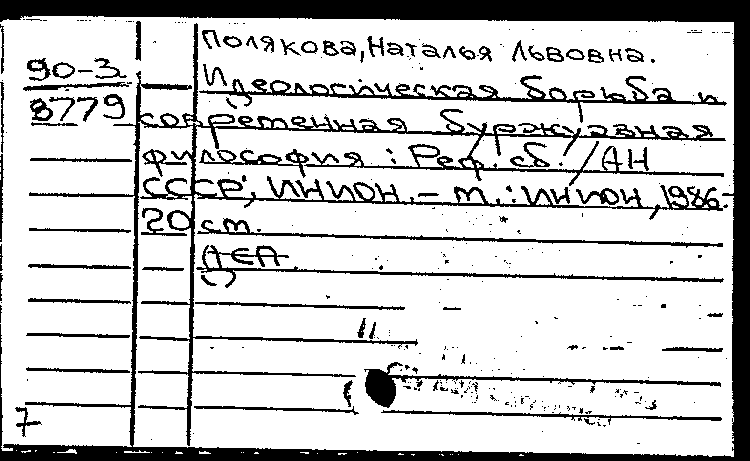 Полякова, Наталья Львовна.
90-3
8779
Идеологическая борьба и
современная буржуазная
философия : Реф. сб. / АН
СССР, ИНИОН. - М. : ИНИОН, 1986.-
20 см.
7